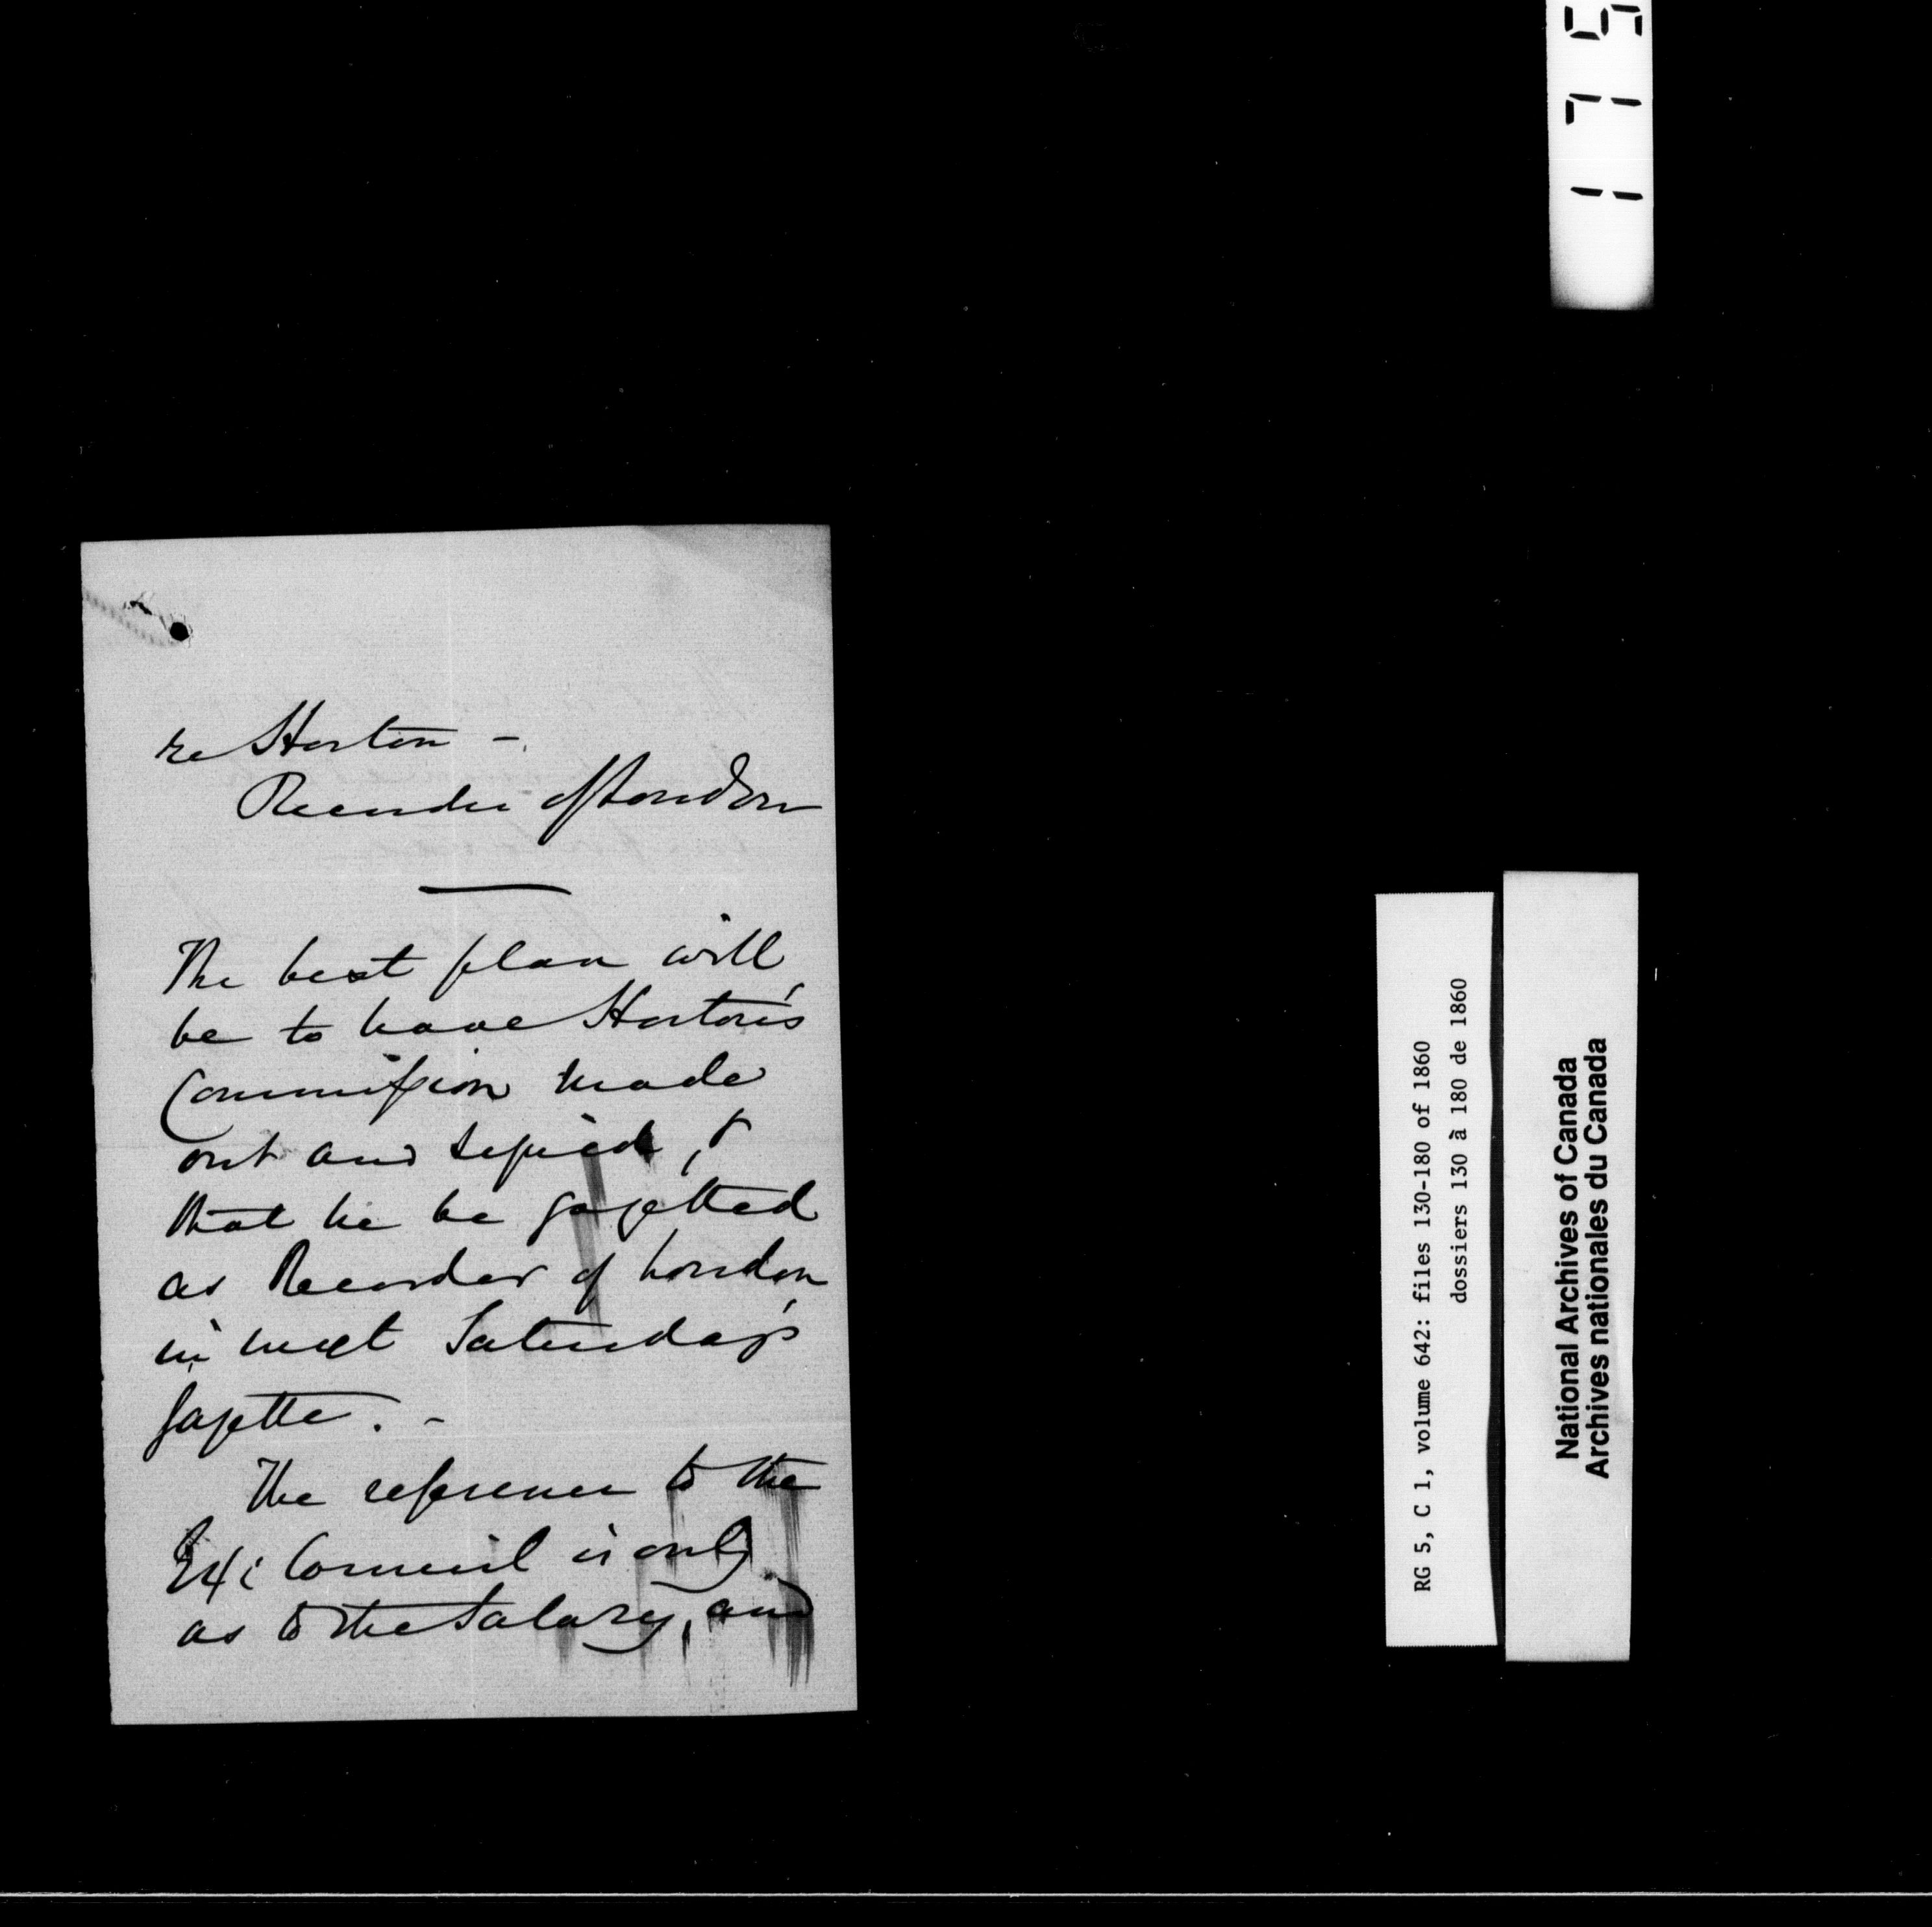 re Horton -
Recorder of London
The best plan will
be to have Horton's
Commission made
out and signed, &
that he be gazetted
as Recorder of London
in next Saturday's
Gazette. -
The reference to the
Exc Council is only
as to the Salary, and
175
RG 5, C 1, volume 642: files 130-180 of 1860
dossiers 130 à 180 de 1860
National Archives of Canada
Archives nationales du Canada